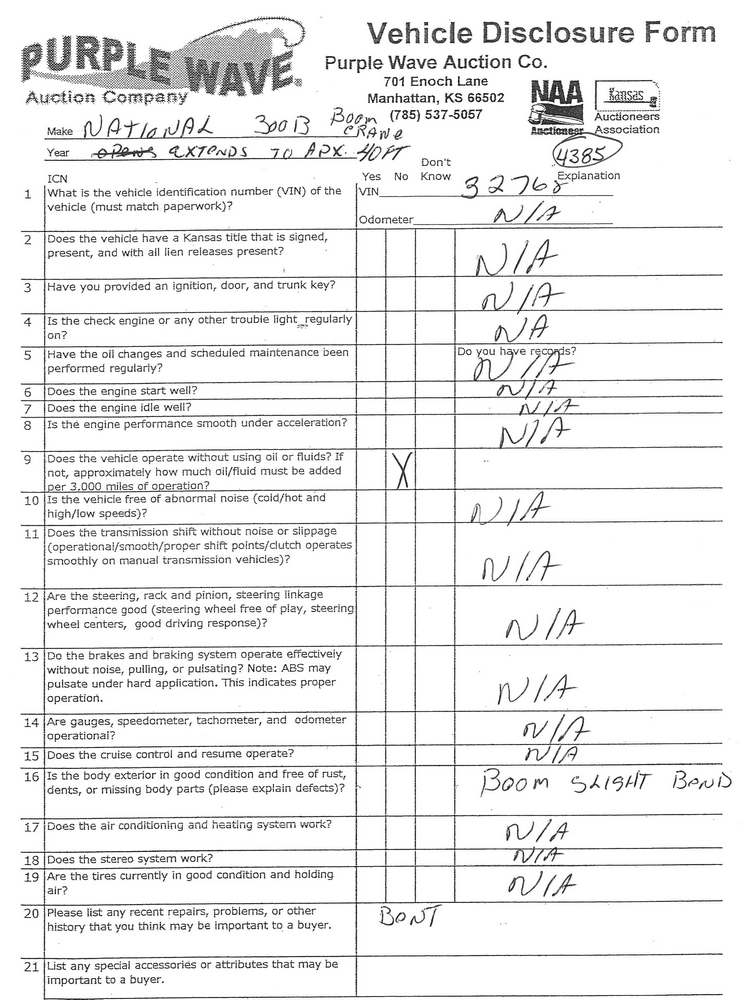 PURPLE WAVE.
Auction Company
Vehicle Disclosure Form
Purple Wave Auction Co.
701 Enoch Lane
Manhattan, KS 66502
(785) 537-5057
NAA
Auctioneer
Kansas
Auctioneers
Association
Make NATIONAL 300B BOOM CRANE
Year OPENS EXTENDS TO APX. 40FT
4385
ICN Yes No Don't Know Explanation
1 What is the vehicle identification number (VIN) of the VIN 32768
vehicle (must match paperwork)?
Odometer N/A
2 Does the vehicle have a Kansas title that is signed,
present, and with all lien releases present? N/A
3 Have you provided an ignition, door, and trunk key? N/A
4 Is the check engine or any other trouble light regularly
on? NA
5 Have the oil changes and scheduled maintenance been Do you have records?
performed regularly? N/A
6 Does the engine start well? N/A
7 Does the engine idle well? N/A
8 Is the engine performance smooth under acceleration? N/A
9 Does the vehicle operate without using oil or fluids? If
not, approximately how much oil/fluid must be added X
per 3,000 miles of operation?
10 Is the vehicle free of abnormal noise (cold/hot and
high/low speeds)? N/A
11 Does the transmission shift without noise or slippage
(operational/smooth/proper shift points/clutch operates
smoothly on manual transmission vehicles)? N/A
12 Are the steering, rack and pinion, steering linkage
performance good (steering wheel free of play, steering
wheel centers, good driving response)? N/A
13 Do the brakes and braking system operate effectively
without noise, pulling, or pulsating? Note: ABS may
pulsate under hard application. This indicates proper
operation. N/A
14 Are gauges, speedometer, tachometer, and odometer
operational? N/A
15 Does the cruise control and resume operate? N/A
16 Is the body exterior in good condition and free of rust,
dents, or missing body parts (please explain defects)? BOOM SLIGHT BEND
17 Does the air conditioning and heating system work? N/A
18 Does the stereo system work? N/A
19 Are the tires currently in good condition and holding
air? N/A
20 Please list any recent repairs, problems, or other BENT
history that you think may be important to a buyer.
21 List any special accessories or attributes that may be
important to a buyer.